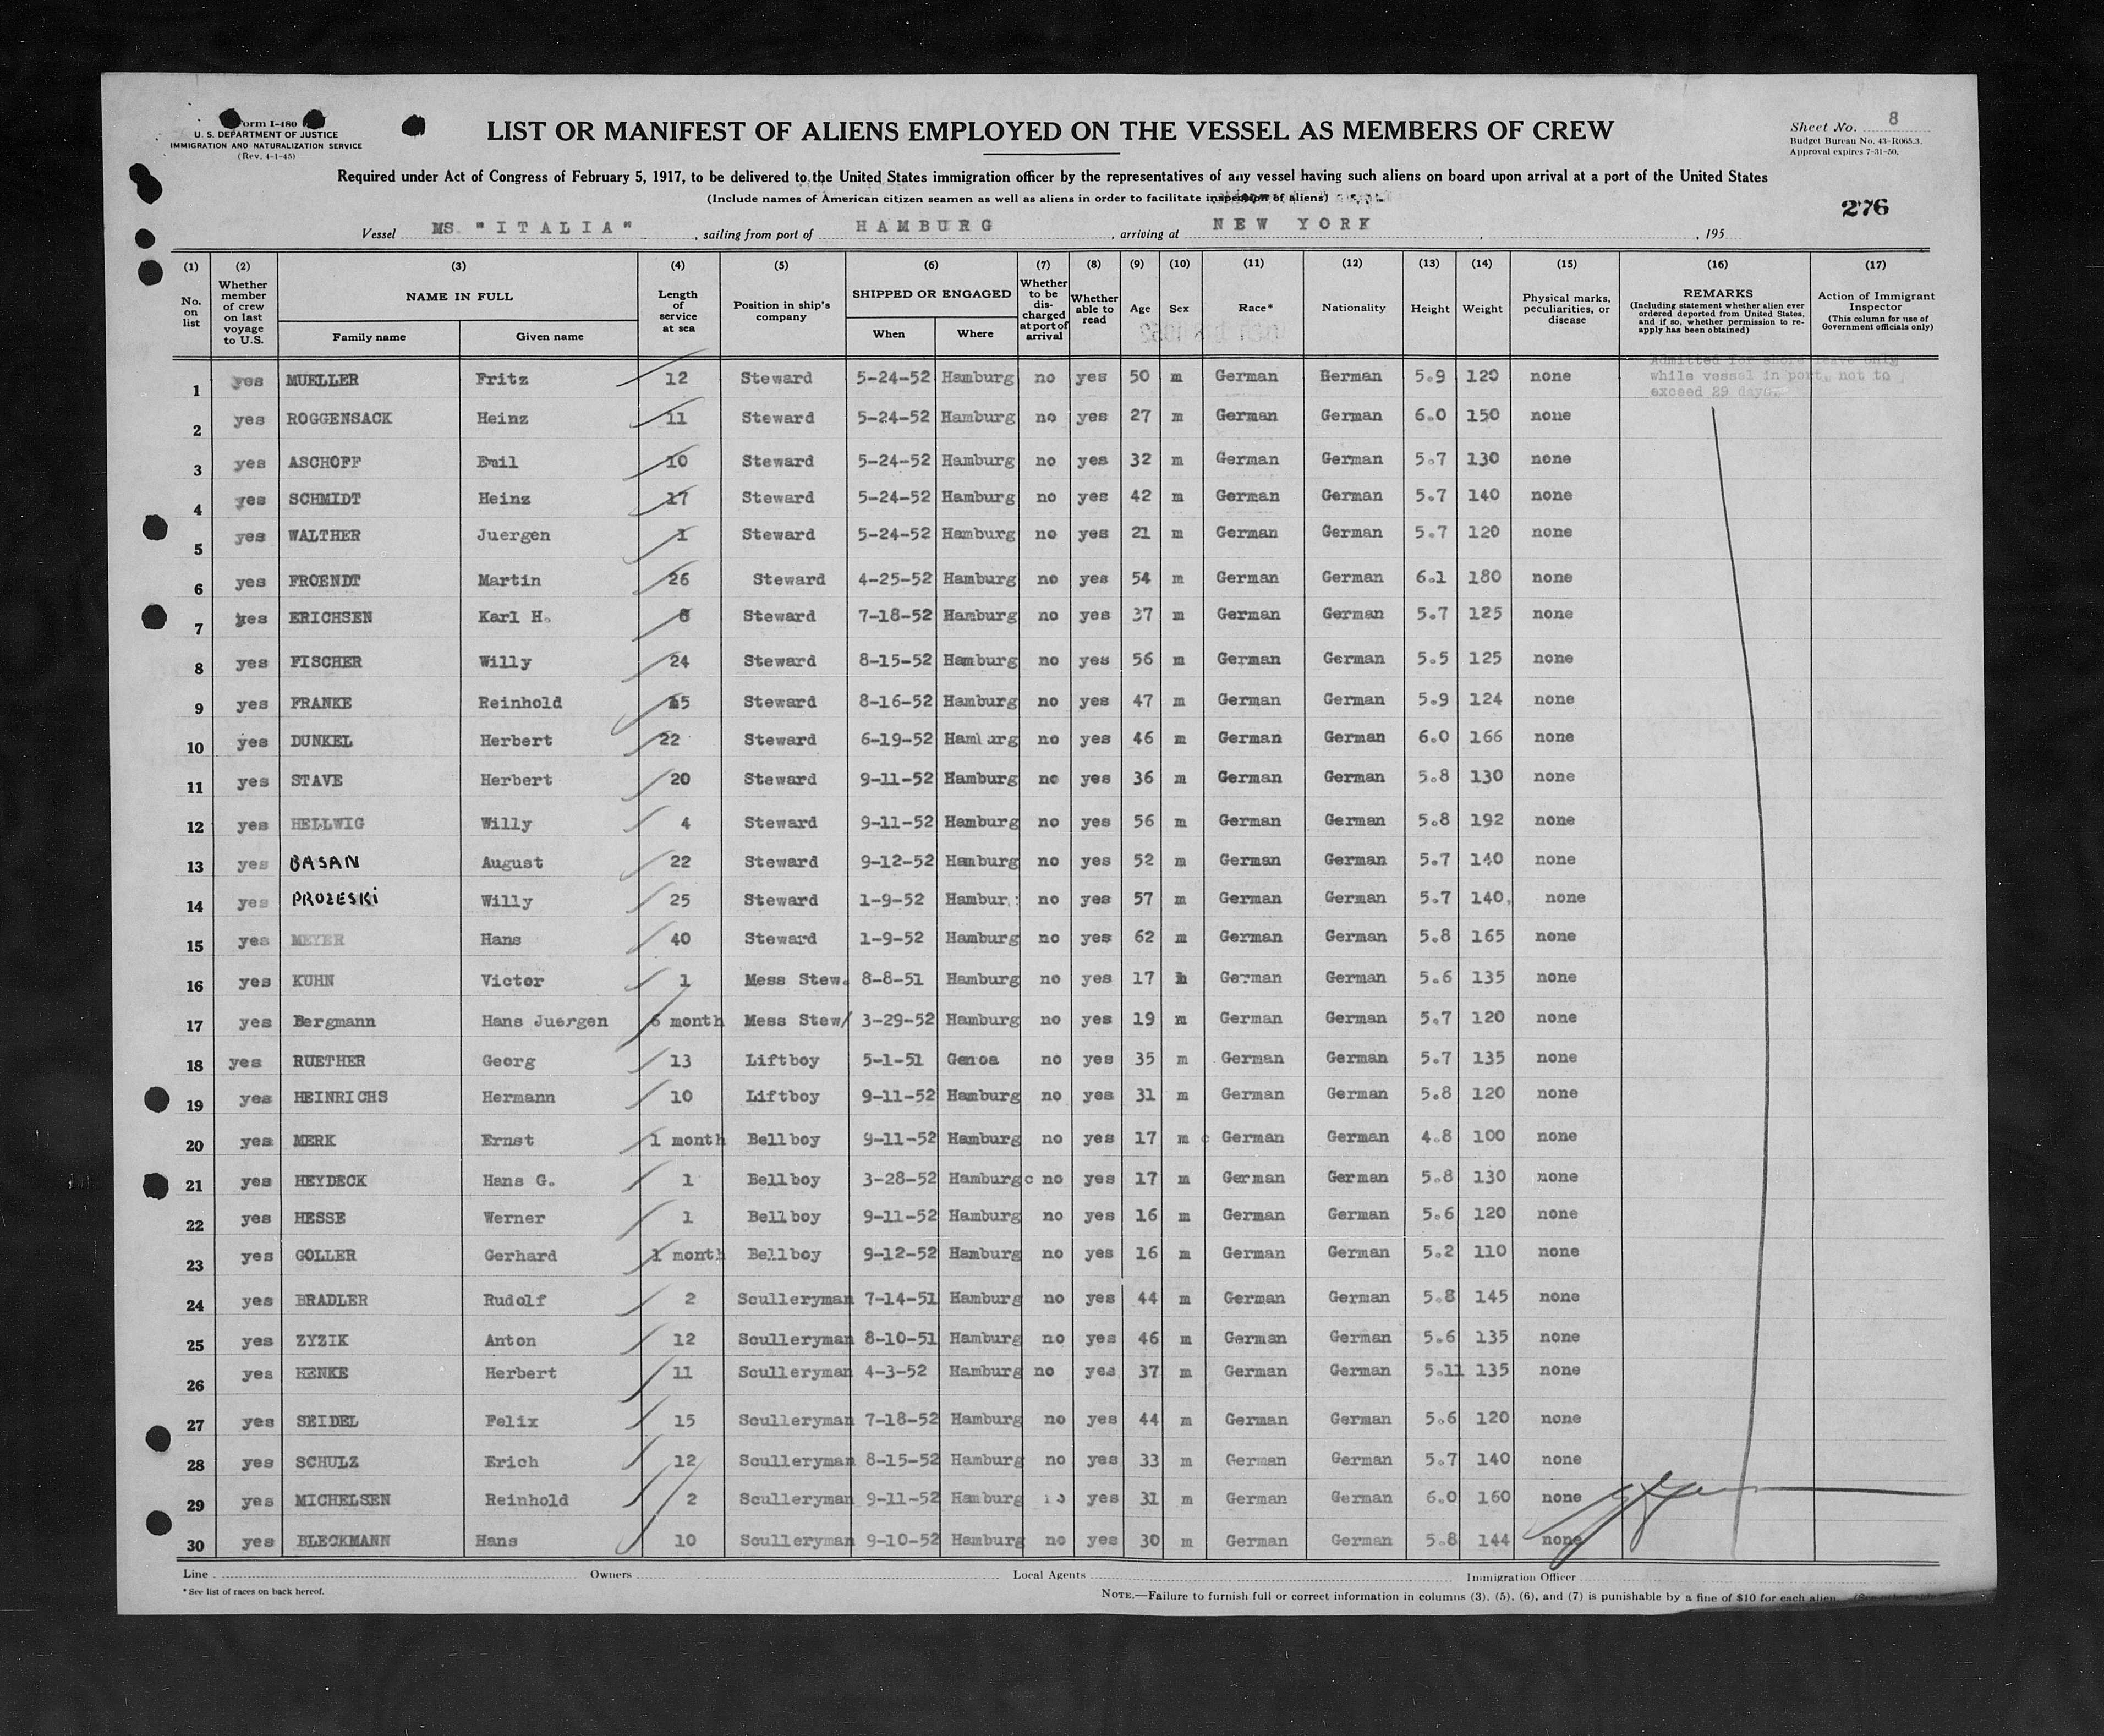 Form I-480
U. S. DEPARTMENT OF JUSTICE
IMMIGRATION AND NATURALIZATION SERVICE
(Rev. 4-1-45)
LIST OR MANIFEST OF ALIENS EMPLOYED ON THE VESSEL AS MEMBERS OF CREW
Sheet No. 8
Budget Bureau No. 43-R065.3.
Approval expires 7-31-50.
Required under Act of Congress of February 5, 1917, to be delivered to the United States immigration officer by the representatives of any vessel having such aliens on board upon arrival at a port of the United States
(Include names of American citizen seamen as well as aliens in order to facilitate inspection of aliens)
276
Vessel MS. "ITALIA", sailing from port of HAMBURG, arriving at NEW YORK, 195
(1) No. on list (2) Whether member of crew on last voyage to U.S. (3) NAME IN FULL Family name Given name (4) Length of service at sea (5) Position in ship's company (6) SHIPPED OR ENGAGED When Where (7) Whether to be discharged at port of arrival (8) Whether able to read (9) Age (10) Sex (11) Race* (12) Nationality (13) Height (14) Weight (15) Physical marks, peculiarities, or disease (16) REMARKS (Including statement whether alien ever ordered deported from United States, and if so, whether permission to reapply has been obtained) (17) Action of Immigrant Inspector (This column for use of Government officials only)
Admitted for shore leave only
while vessel in port, not to
exceed 29 days.
1 yes MUELLER Fritz 12 Steward 5-24-52 Hamburg no yes 50 m German German 5.9 120 none
2 yes ROGGENSACK Heinz 11 Steward 5-24-52 Hamburg no yes 27 m German German 6.0 150 none
3 yes ASCHOFF Emil 10 Steward 5-24-52 Hamburg no yes 32 m German German 5.7 130 none
4 yes SCHMIDT Heinz 17 Steward 5-24-52 Hamburg no yes 42 m German German 5.7 140 none
5 yes WALTHER Juergen 1 Steward 5-24-52 Hamburg no yes 21 m German German 5.7 120 none
6 yes FROENDT Martin 26 Steward 4-25-52 Hamburg no yes 54 m German German 6.1 180 none
7 yes ERICHSEN Karl H. 8 Steward 7-18-52 Hamburg no yes 37 m German German 5.7 125 none
8 yes FISCHER Willy 24 Steward 8-15-52 Hamburg no yes 56 m German German 5.5 125 none
9 yes FRANKE Reinhold 15 Steward 8-16-52 Hamburg no yes 47 m German German 5.9 124 none
10 yes DUNKEL Herbert 22 Steward 6-19-52 Hamburg no yes 46 m German German 6.0 166 none
11 yes STAVE Herbert 20 Steward 9-11-52 Hamburg no yes 36 m German German 5.8 130 none
12 yes HELLWIG Willy 4 Steward 9-11-52 Hamburg no yes 56 m German German 5.8 192 none
13 yes BASAN August 22 Steward 9-12-52 Hamburg no yes 52 m German German 5.7 140 none
14 yes PROZESKI Willy 25 Steward 1-9-52 Hambur no yes 57 m German German 5.7 140, none
15 yes MEYER Hans 40 Steward 1-9-52 Hamburg no yes 62 m German German 5.8 165 none
16 yes KUHN Victor 1 Mess Stew. 8-8-51 Hamburg no yes 17 m German German 5.6 135 none
17 yes Bergmann Hans Juergen 6 month Mess Stew/ 3-29-52 Hamburg no yes 19 m German German 5.7 120 none
18 yes RUETHER Georg 13 Liftboy 5-1-51 Genoa no yes 35 m German German 5.7 135 none
19 yes HEINRICHS Hermann 10 Liftboy 9-11-52 Hamburg no yes 31 m German German 5.8 120 none
20 yes MERK Ernst 1 month Bellboy 9-11-52 Hamburg no yes 17 m German German 4.8 100 none
21 yes HEYDECK Hans G. 1 Bellboy 3-28-52 Hamburg no yes 17 m German German 5.8 130 none
22 yes HESSE Werner 1 Bellboy 9-11-52 Hamburg no yes 16 m German German 5.6 120 none
23 yes GOLLER Gerhard 1 month Bellboy 9-12-52 Hamburg no yes 16 m German German 5.2 110 none
24 yes BRADLER Rudolf 2 Sculleryman 7-14-51 Hamburg no yes 44 m German German 5.8 145 none
25 yes ZYZIK Anton 12 Sculleryman 8-10-51 Hamburg no yes 46 m German German 5.6 135 none
26 yes HENKE Herbert 11 Sculleryman 4-3-52 Hamburg no yes 37 m German German 5.11 135 none
27 yes SEIDEL Felix 15 Sculleryman 7-18-52 Hamburg no yes 44 m German German 5.6 120 none
28 yes SCHULZ Erich 12 Sculleryman 8-15-52 Hamburg no yes 33 m German German 5.7 140 none
29 yes MICHELSEN Reinhold 2 Sculleryman 9-11-52 Hamburg no yes 31 m German German 6.0 160 none
30 yes BLECKMANN Hans 10 Sculleryman 9-10-52 Hamburg no yes 30 m German German 5.8 144 none
Line Owners Local Agents Immigration Officer
* See list of races on back hereof.
NOTE.—Failure to furnish full or correct information in columns (3), (5), (6), and (7) is punishable by a fine of $10 for each alien.